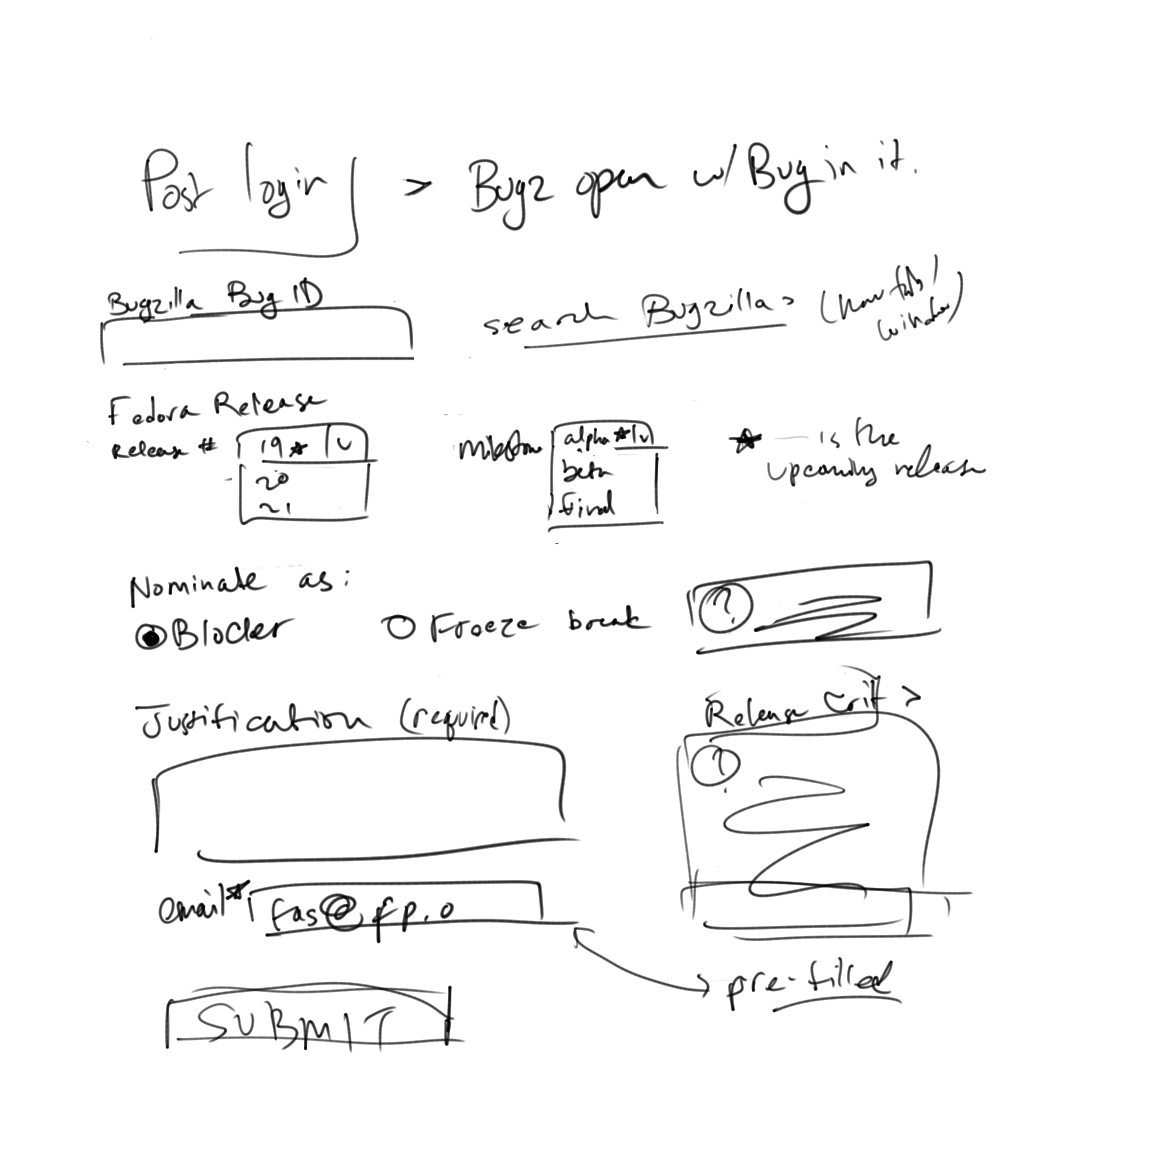 Post login > Bugz open w/ Bug in it.
Bugzilla Bug ID
search Bugzilla > (new tab/
window)
Fedora Release
Release # 19★ v
20
21
Milestone alpha★ v
beta
final
★ — is the
upcoming release
Nominate as:
Blocker Freeze break
?
Justification (required)
Release Crit >
?
email* fas@fp.o
pre-filled
SUBMIT